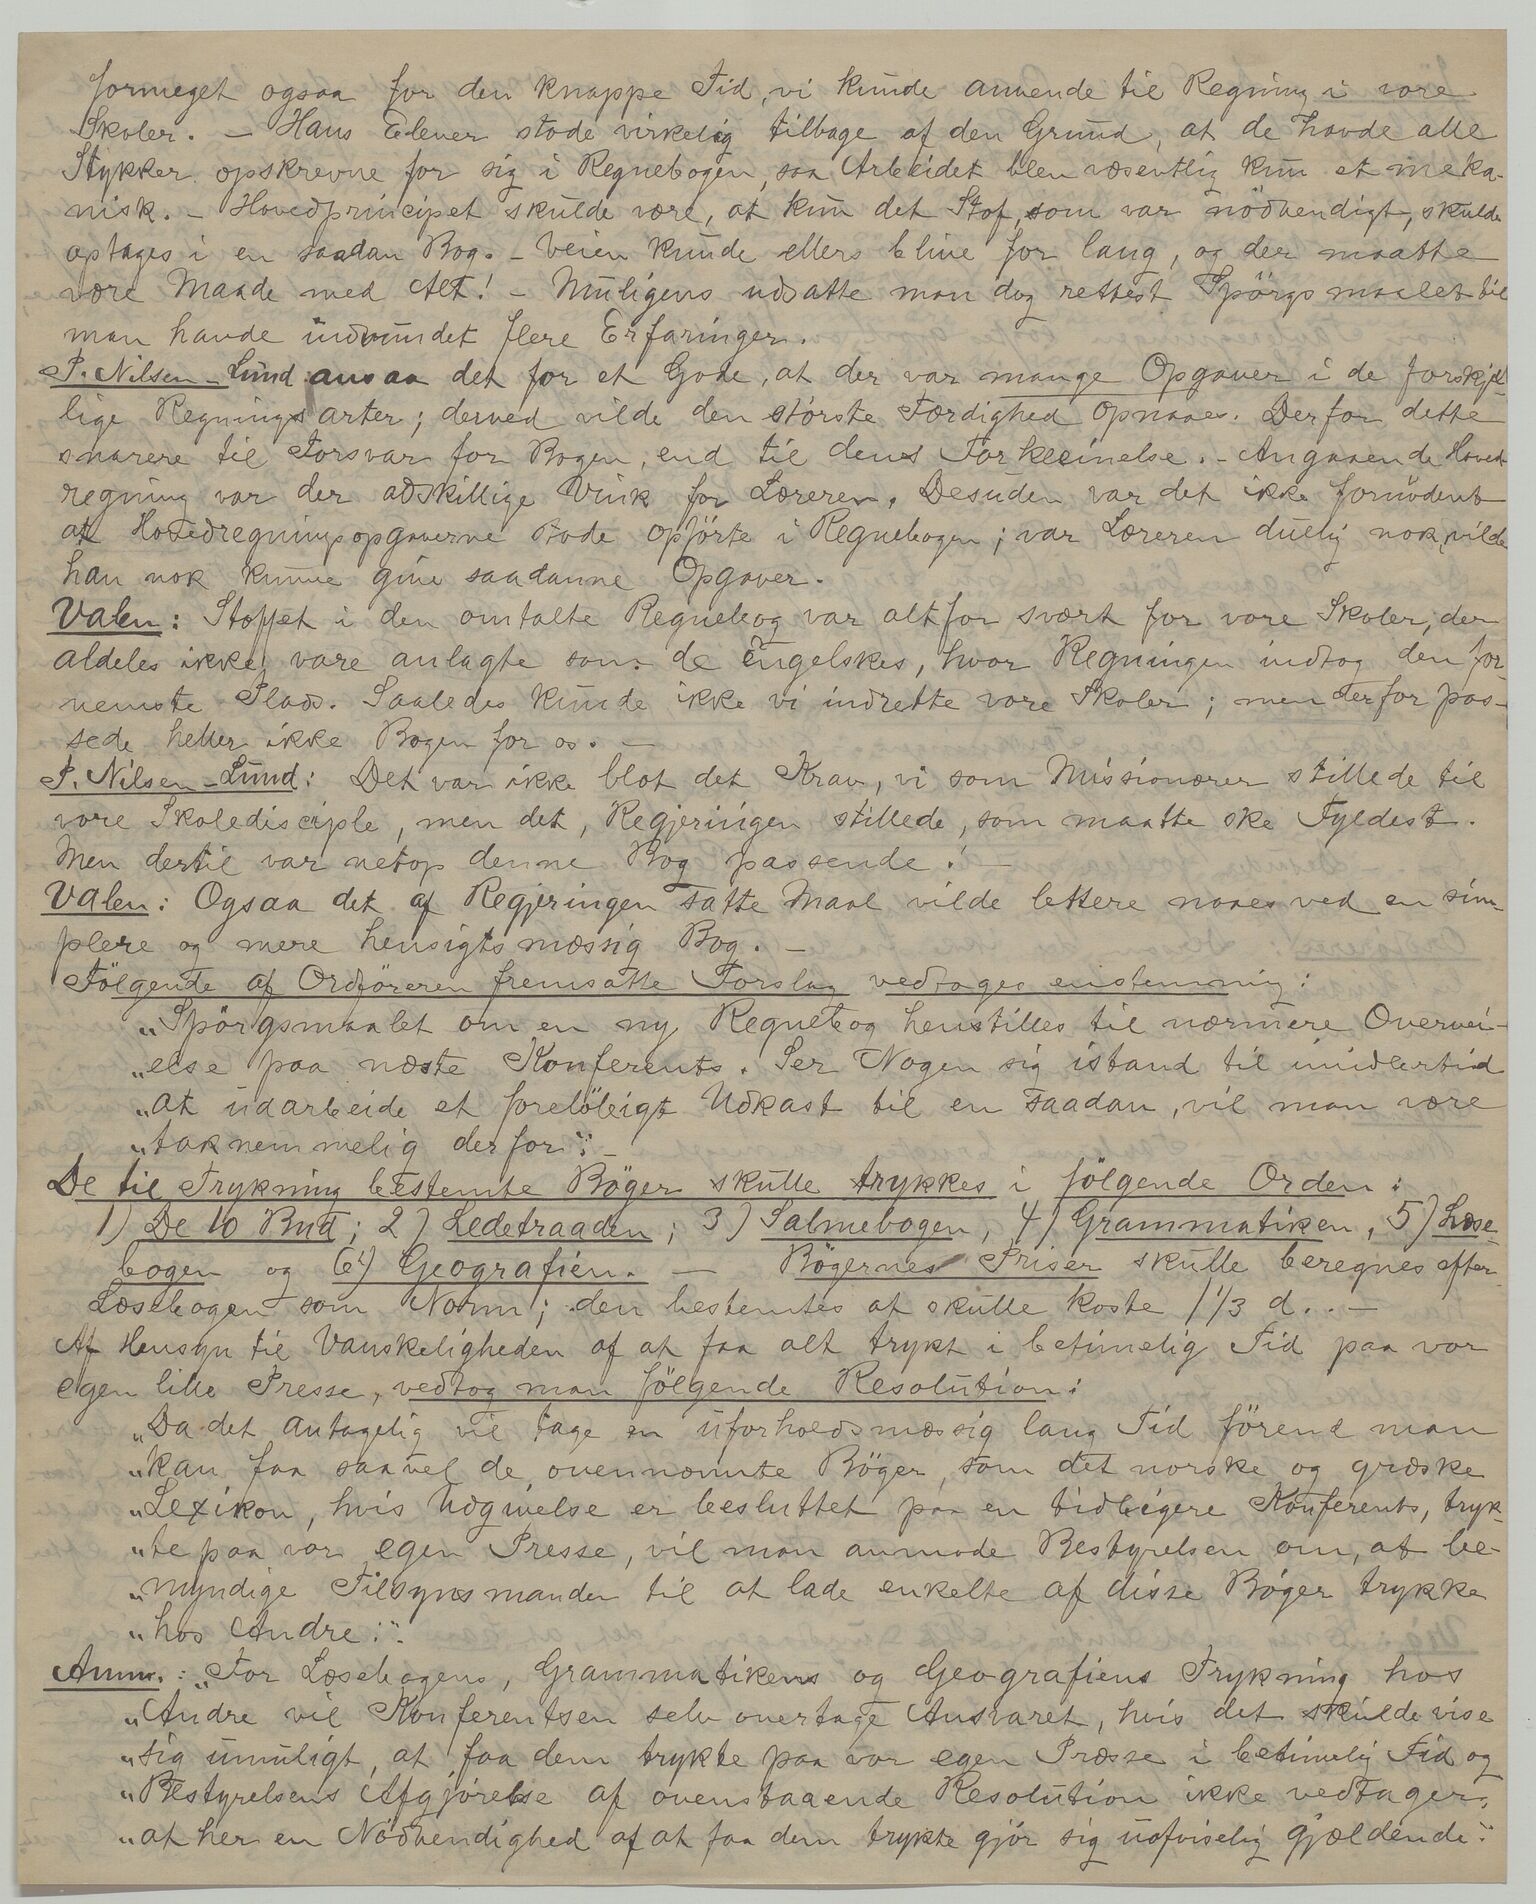 formeget ogsaa for den knappe Tid, vi kunde anvende til Regning i vore
Skoler. – Hans Elever stode virkelig tilbage af den Grund, at de havde alle
Stykker opskrevne for sig i Regnebogen, saa Arbeidet blev væsentlig kun et meka-
nisk. – Hovedprincipet skulde være, at kun det Stof, som var nödvendigt, skulde
optages i en saadan Bog. – Veien kunde ellers blive for lang, og der maatte
være Maade med Alt! – Muligens udsatte man dog rettest Spörgsmaalet til
man havde indvundet flere Erfaringer.
P. Nilsen-Lund ansaa det for et Gode, at der var mange Opgaver i de forskjel-
lige Regningsarter; derved vilde den største Færdighed opnaaes. Derfor dette
snarere til Forsvar for Bogen, end til dens Forkleinelse. – Angaaende Hoved-
regning var der adskillige Vink for Læreren. Desuden var det ikke fornödent
at Hovedregningsopgaverne stode opförte i Regnebogen; var Læreren duelig nok, vilde
han nok kunne give saadanne Opgaver.
Valen: Stoffet i den omtalte Regnebog var altfor svært for vore Skoler, der
aldeles ikke vare anlagte som de Engelskes, hvor Regningen indtog den for-
nemste Plads. Saaledes kunde ikke vi indrette vore Skoler; men derfor pas-
sede heller ikke Bogen for os. –
P. Nilsen-Lund: Det var ikke blot det Krav, vi som Missionærer stillede til
vore Skoledisciple, men det, Regjeringen stillede, som maatte ske Fyldest.
Men dertil var netop denne Bog passende! –
Valen: Ogsaa det af Regjeringen satte Maal vilde lettere naaes ved en sim-
plere og mere hensigtsmæssig Bog. –
Fölgende af Ordföreren fremsatte Forslag vedtages enstemmig:
„Spörgsmaalet om en ny Regnebog henstilles til nærmere Overvei-
„else paa næste Konferents. Ser Nogen sig istand til imidlertid
„at udarbeide et foreløbigt Udkast til en saadan, vil man være
„taknemmelig derfor“. –
De til Trykning bestemte Böger skulle trykkes i fölgende Orden:
1) De 10 Bud; 2) Ledetraaden; 3) Salmebogen, 4) Grammatiken, 5) Læse-
bogen og 6) Geografien. – Bögernes Priser skulle beregnes efter
Læsebogen som Norm; den bestemtes at skulle koste 1 1/3 d.. –
Af Hensyn til Vanskeligheden af at faa alt trykt i betimelig Tid paa vor
egen lille Presse, vedtog man fölgende Resolution:
„Da det antagelig vil tage en uforholdsmæssig lang Tid förend man
„kan faa saavel de ovennævnte Böger, som det norske og græske
„Lexikon, hvis Udgivelse er besluttet paa en tidligere Konferents, tryk-
„te paa vor egen Presse, vil man anmode Bestyrelsen om, at be-
„myndige Tilsynsmanden til at lade enkelte af disse Bøger trykke
„hos Andre“.
Anm.: „For Læsebogens, Grammatikens og Geografiens Trykning hos
„Andre vil Konferentsen selv overtage Ansvaret, hvis det skulde vise
„sig umuligt, at faa dem trykte paa vor egen Presse i betimelig Tid og
„Bestyrelsens Afgjørelse af ovenstaaende Resolution ikke vedtager,
„at her en Nödvendighed af at faa dem trykte gjör sig uafviselig gjældende“.